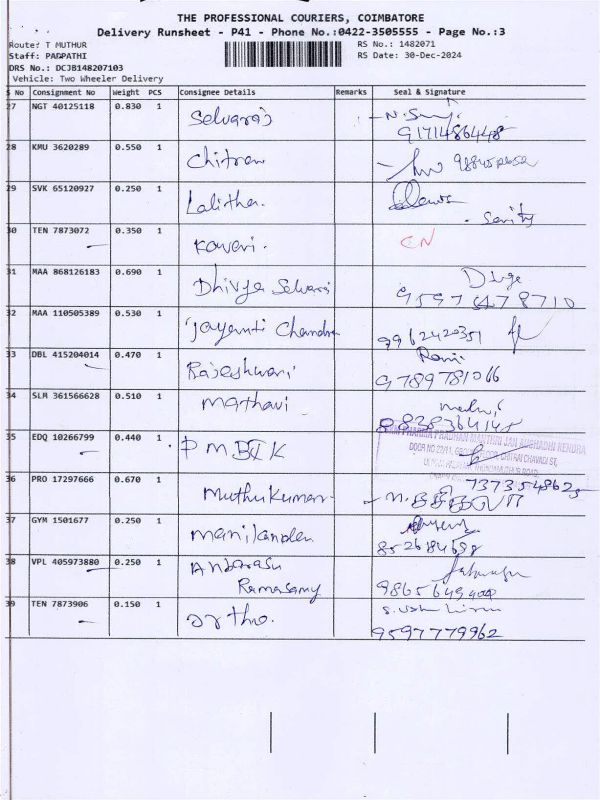 THE PROFESSIONAL COURIERS, COIMBATORE
Delivery Runsheet - P41 - Phone No.:0422-3505555 - Page No.:3
Route: T MUTHUR
RS No.: 1482071
Staff: PADPATHI
RS Date: 30-Dec-2024
DRS No.: DCJB148207103
Vehicle: Two Wheeler Delivery
No Consignment No Weight PCS Consignee Details Remarks Seal & Signature
27 NGT 40125118 0.830 1 Selvaraj
28 KMU 3620289 0.550 1 Chitran
29 SVK 65120927 0.250 1 Lalitha.
30 TEN 7873072 0.350 1 Kaveri. CN
31 MAA 868126183 0.690 1 Dhivya Selvaraj
32 MAA 110505389 0.530 1 Jayanti Chandra 9962420351
33 DBL 415204014 0.470 1 Rajeshwari Rani
9789781066
34 SLM 361566628 0.510 1 mathavi
35 EDQ 10266799 0.440 1 PMBJK PRADHAN MANTHRI JAN AUSHADHI KENDRA
36 PRO 17297666 0.670 1 Muthukumar
37 GYM 1501677 0.250 1 manikanden
8526184698
38 VPL 405973880 0.250 1 Anbarasu
Ramasamy
39 TEN 7873906 0.150 1 artho.
9597779962